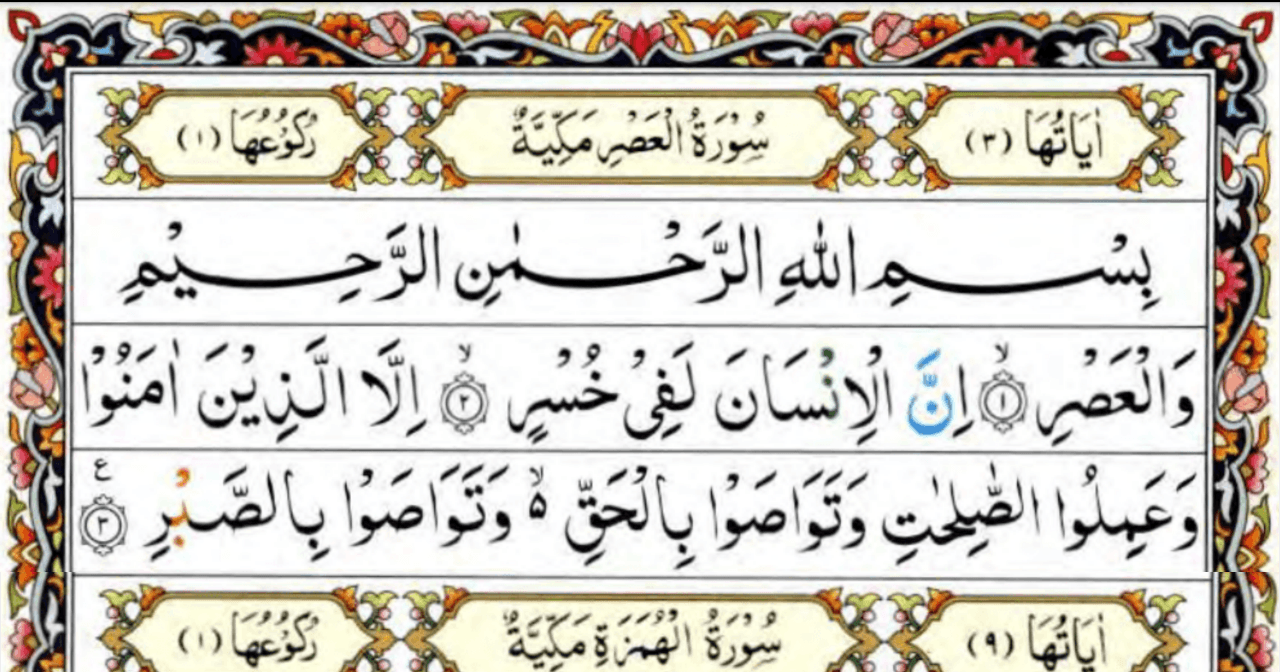 اٰيَاتُهَا (٣) سُوْرَةُ الْعَصْرِ مَكِّيَّةٌ رُكُوْعُهَا (١)
بِسْمِ اللّٰهِ الرَّحْمٰنِ الرَّحِيْمِ
وَالْعَصْرِ ۙ‏﴿١﴾ اِنَّ الْاِنْسَانَ لَفِىْ خُسْرٍ ۙ‏﴿٢﴾ اِلَّا الَّذِيْنَ اٰمَنُوْا
وَعَمِلُوا الصّٰلِحٰتِ وَتَوَاصَوْا بِالْحَقِّ ۙ۵ وَتَوَاصَوْا بِالصَّبْرِ ﴿٣﴾ ع
اٰيَاتُهَا (٩) سُوْرَةُ الْهُمَزَةِ مَكِّيَّةٌ رُكُوْعُهَا (١)